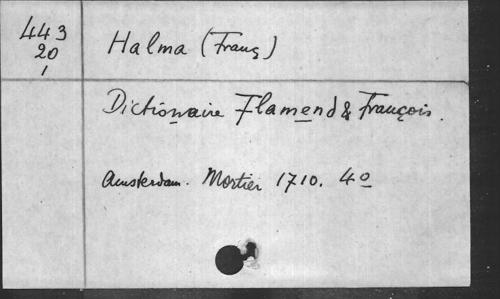 443
20
1
Halma (Franç)
Dictionaire Flamend & François.
Amsterdam. Mortier 1710. 4o